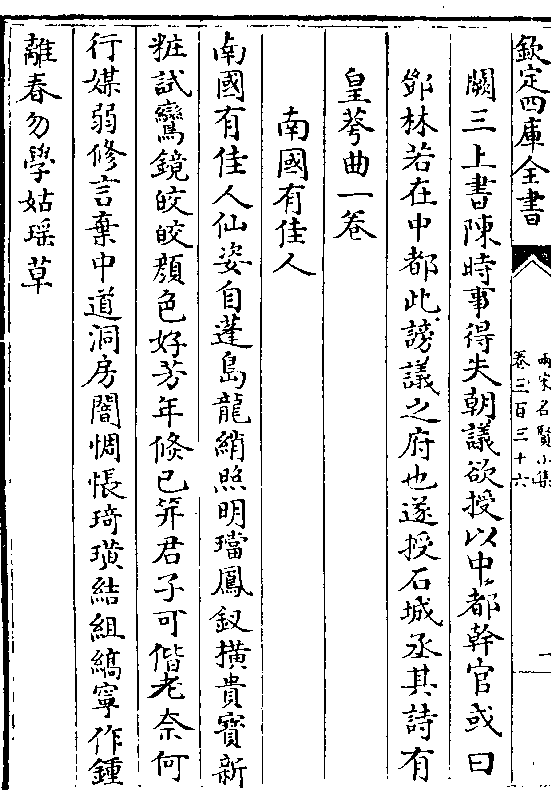 欽定四庫全書
兩宋名賢小集
卷三百三十六
一
闕三上書陳時事得失朝議欲授以中都幹官或曰
鄧林若在中都此謗議之府也遂授石城丞其詩有
皇荂曲一卷
南國有佳人
南國有佳人仙姿自蓬島龍綃照明璫鳳釵橫貴寳新
粧試鸞鏡皎皎顔色好芳年倐已筓君子可偕老奈何
行媒弱修言棄中道洞房闇惆悵琦璜結組縞寜作鍾
離春勿學姑瑶草